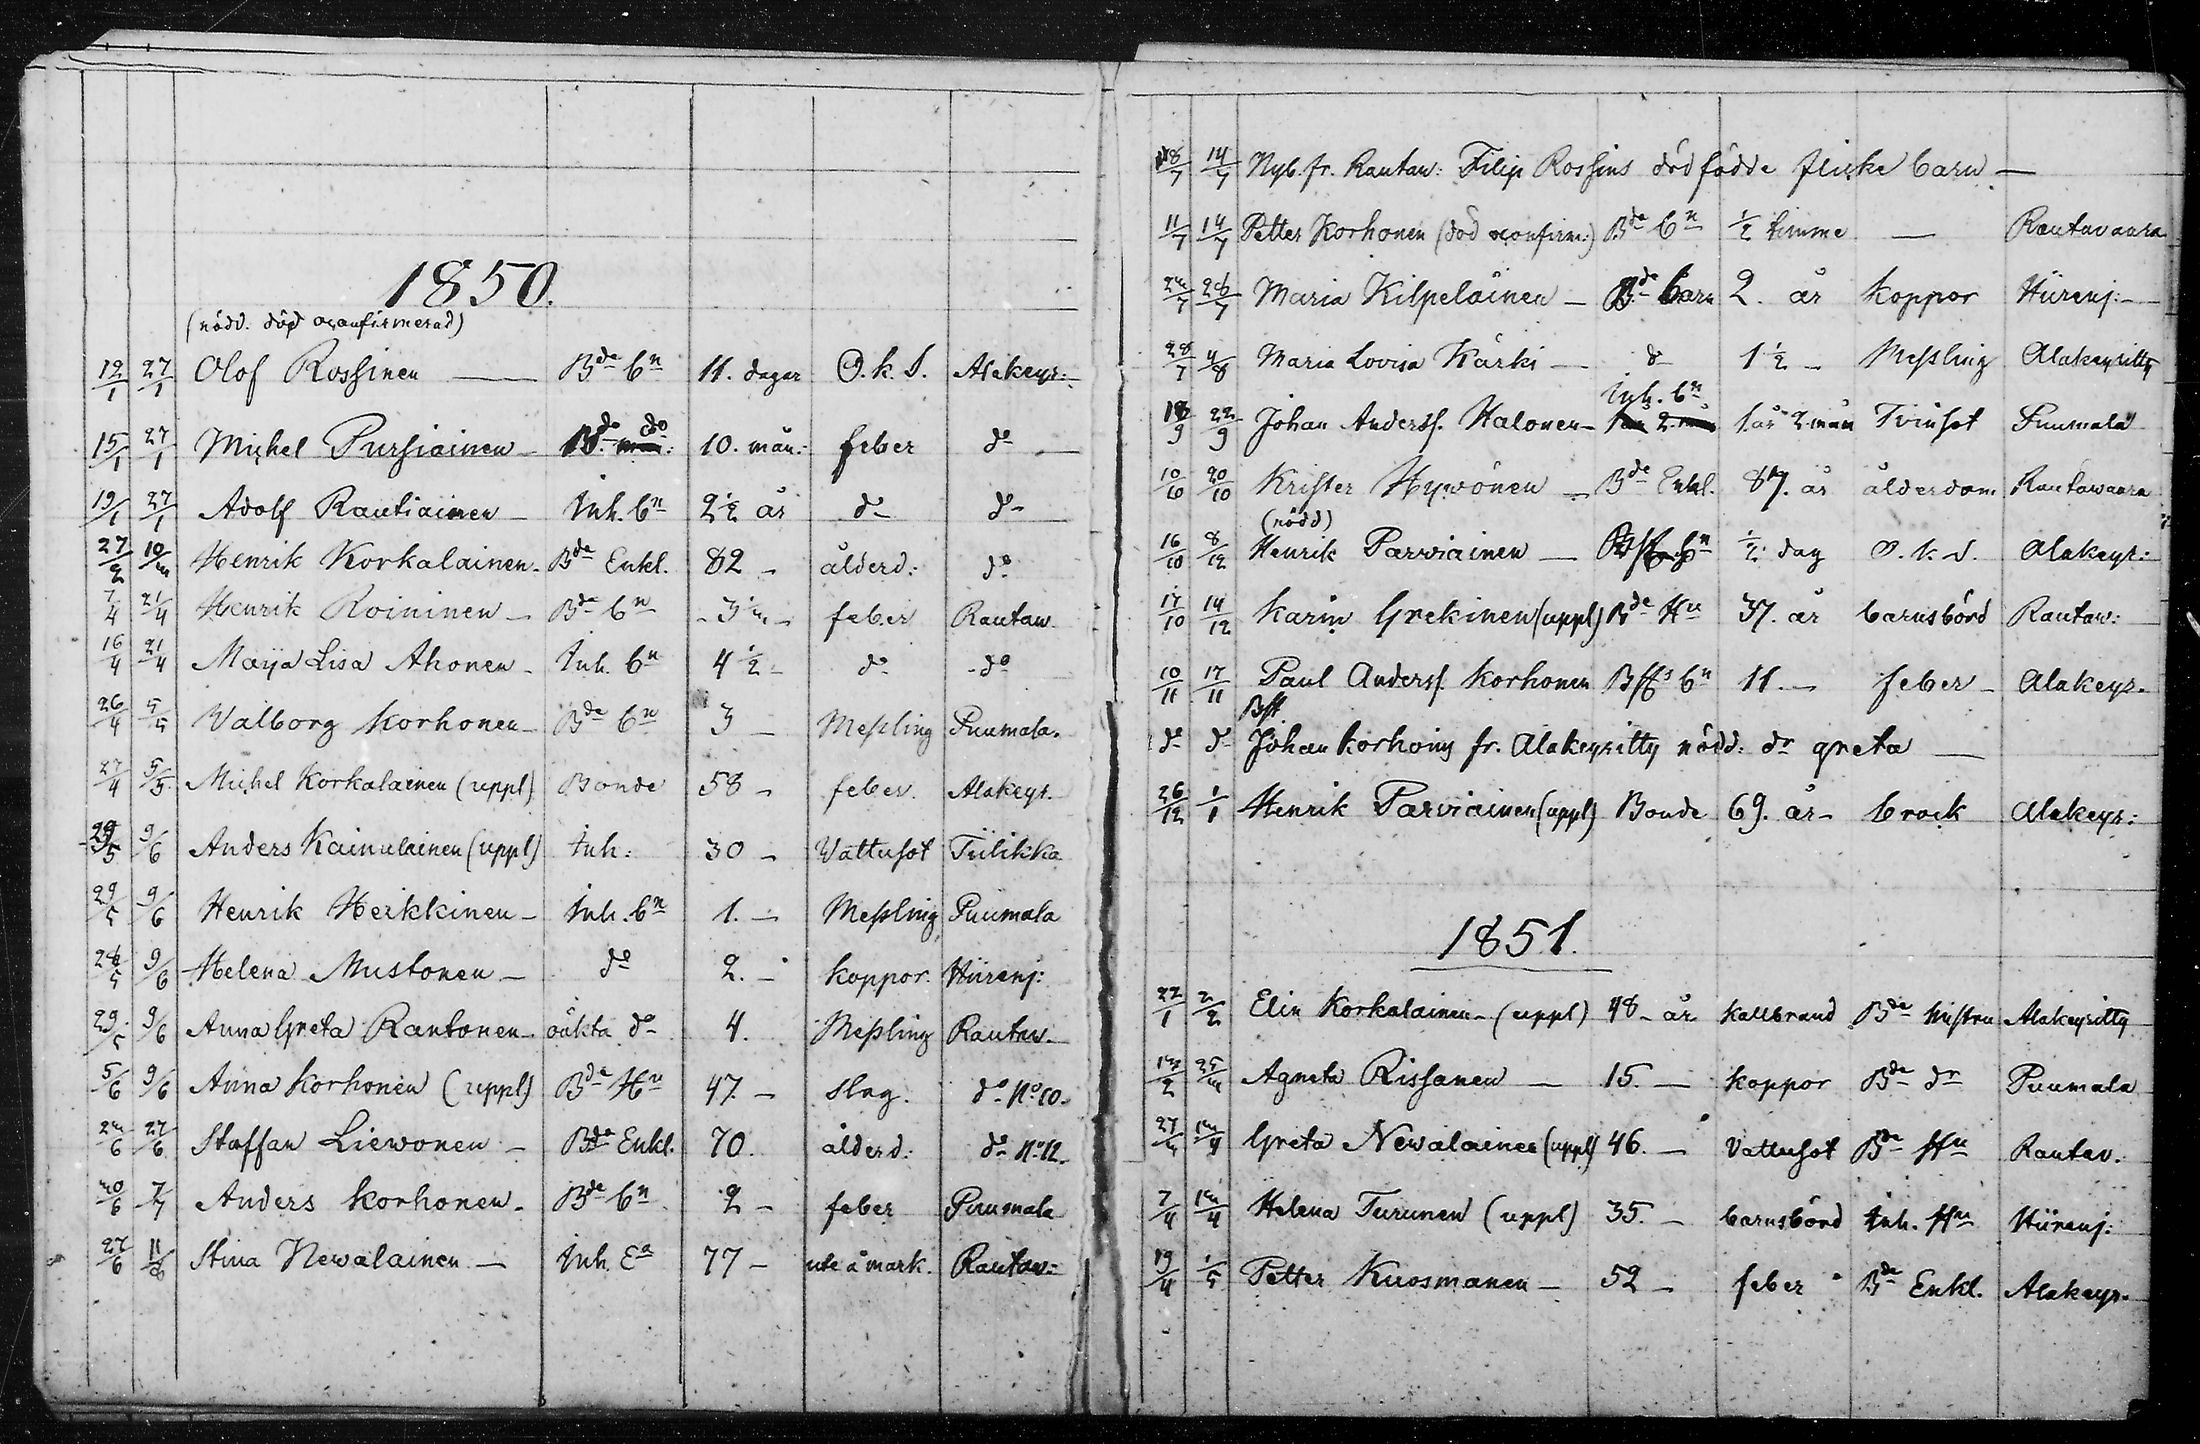 1850.
(nödd. död oconfirmerad)
19/1 27/1 Olof Rossinen — Bde bn 11. dagar O.k.S. Alakeyr:
15/1 27/1 Michel Pursiainen — do 10. mån: feber do —
19/1 27/1 Adolf Rautiainen — Inh. bn 2 1/2 år do do
27/2 10/3 Henrik Korkalainen — Bde Enkl. 82 — ålderd: do
7/4 21/4 Henrik Roininen — Bde bn — 3 — feber Rautaw.
16/4 21/4 Maija Lisa Ahonen — Inh. bn 4 1/2 — do — do
26/4 5/5 Walborg Korhonen — Bde bn 3 — Messling Puumala.
27/4 5/5 Michel Korkalainen (uppl) Bonde 58 — feber. Alakeyr.
29/5 9/6 Anders Kainulainen (uppl) Inh: 30 — Vattusot Tiilikka
29/5 9/6 Henrik Heikkinen — Inh. bn 1. — Messling Puumala
28/5 9/6 Helena Mustonen — do 2. — koppor. Hiirenj:
29/5 9/6 Anna Greta Rantonen — oäkta do 4. Messling Rautaw.
5/6 9/6 Anna Korhonen (uppl) Bde Hu 47. — slag. do No 10.
23/6 27/6 Staffan Liewonen — Bde Enkl. 70. ålderd: do No 12.
30/6 7/7 Anders Korhonen — Bde bn 2 — feber Puumala
27/6 11/8 Stina Newalainen — Inh. Ea 77 — ute å mark. Rautaw:
8/7 14/7 Nyb. fr. Rautaw: Filip Rossins död födde flicke barn —
11/7 14/7 Petter Korhonen (död oconfirm:) Bde bn 1/2 timme — Rautavaara
23/7 28/7 Maria Kilpeläinen — Bde barn 2. år koppor Hiirenj:
28/7 4/8 Maria Lovisa Kärki — do 1 1/2 — Messling Alakeyritty
Inh. bn
18/9 22/9 Johan Anderss. Halonen — 1 år 2 mån Tvinsot Puumala
10/10 20/10 Krister Hyvönen — Bde Enkl. 87. år ålderdom Rautawaara
(nödd)
16/10 8/12 Henrik Parviainen — 1/2 dag O.k.S. Alakeyr:
17/10 14/12 Karin Grekinen (uppl) Bde Hu 37. år barnsbörd Rautaw:
10/11 17/11 Paul Anderss. Korhonen Bffs bn 11. — feber — Alakeyr.
Bff
do do Johan Korhoins fr. Alakeyritty nödd: dr greta —
26/12 1/1 Henrik Parviainen (uppl) Bonde 69. år — brock Alakeyr:
1851.
22/1 2/2 Elin Korkalainen — (uppl) 48 — år kallbrand Bde hustru Alakeyritty
13/2 25/3 Agneta Rissanen — 15. — koppor Bde dr Puumala
27/3 13/4 Greta Newalainen (uppl) 46. — Vattusot Bde Hu Rautav.
7/4 13/4 Helena Turunen (uppl) 35. — barnsbörd Inh. Hu Hiirenj:
19/4 1/5 Petter Kuosmanen — 52 — feber Bde Enkl. Alakeyr.